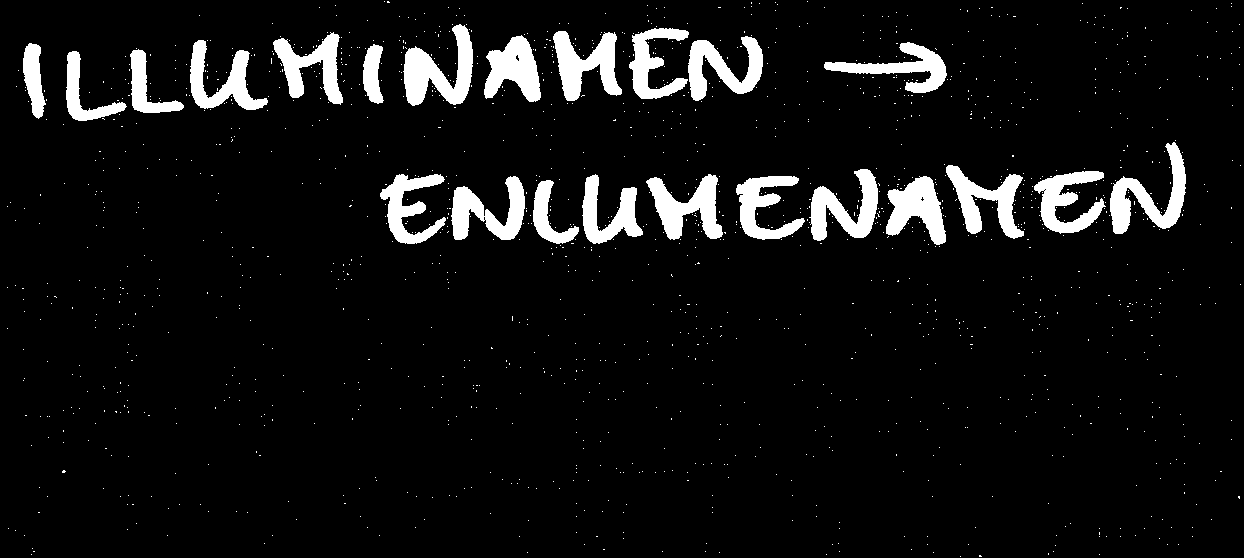 ILLUMINAMEN →
ENLUMENAMEN